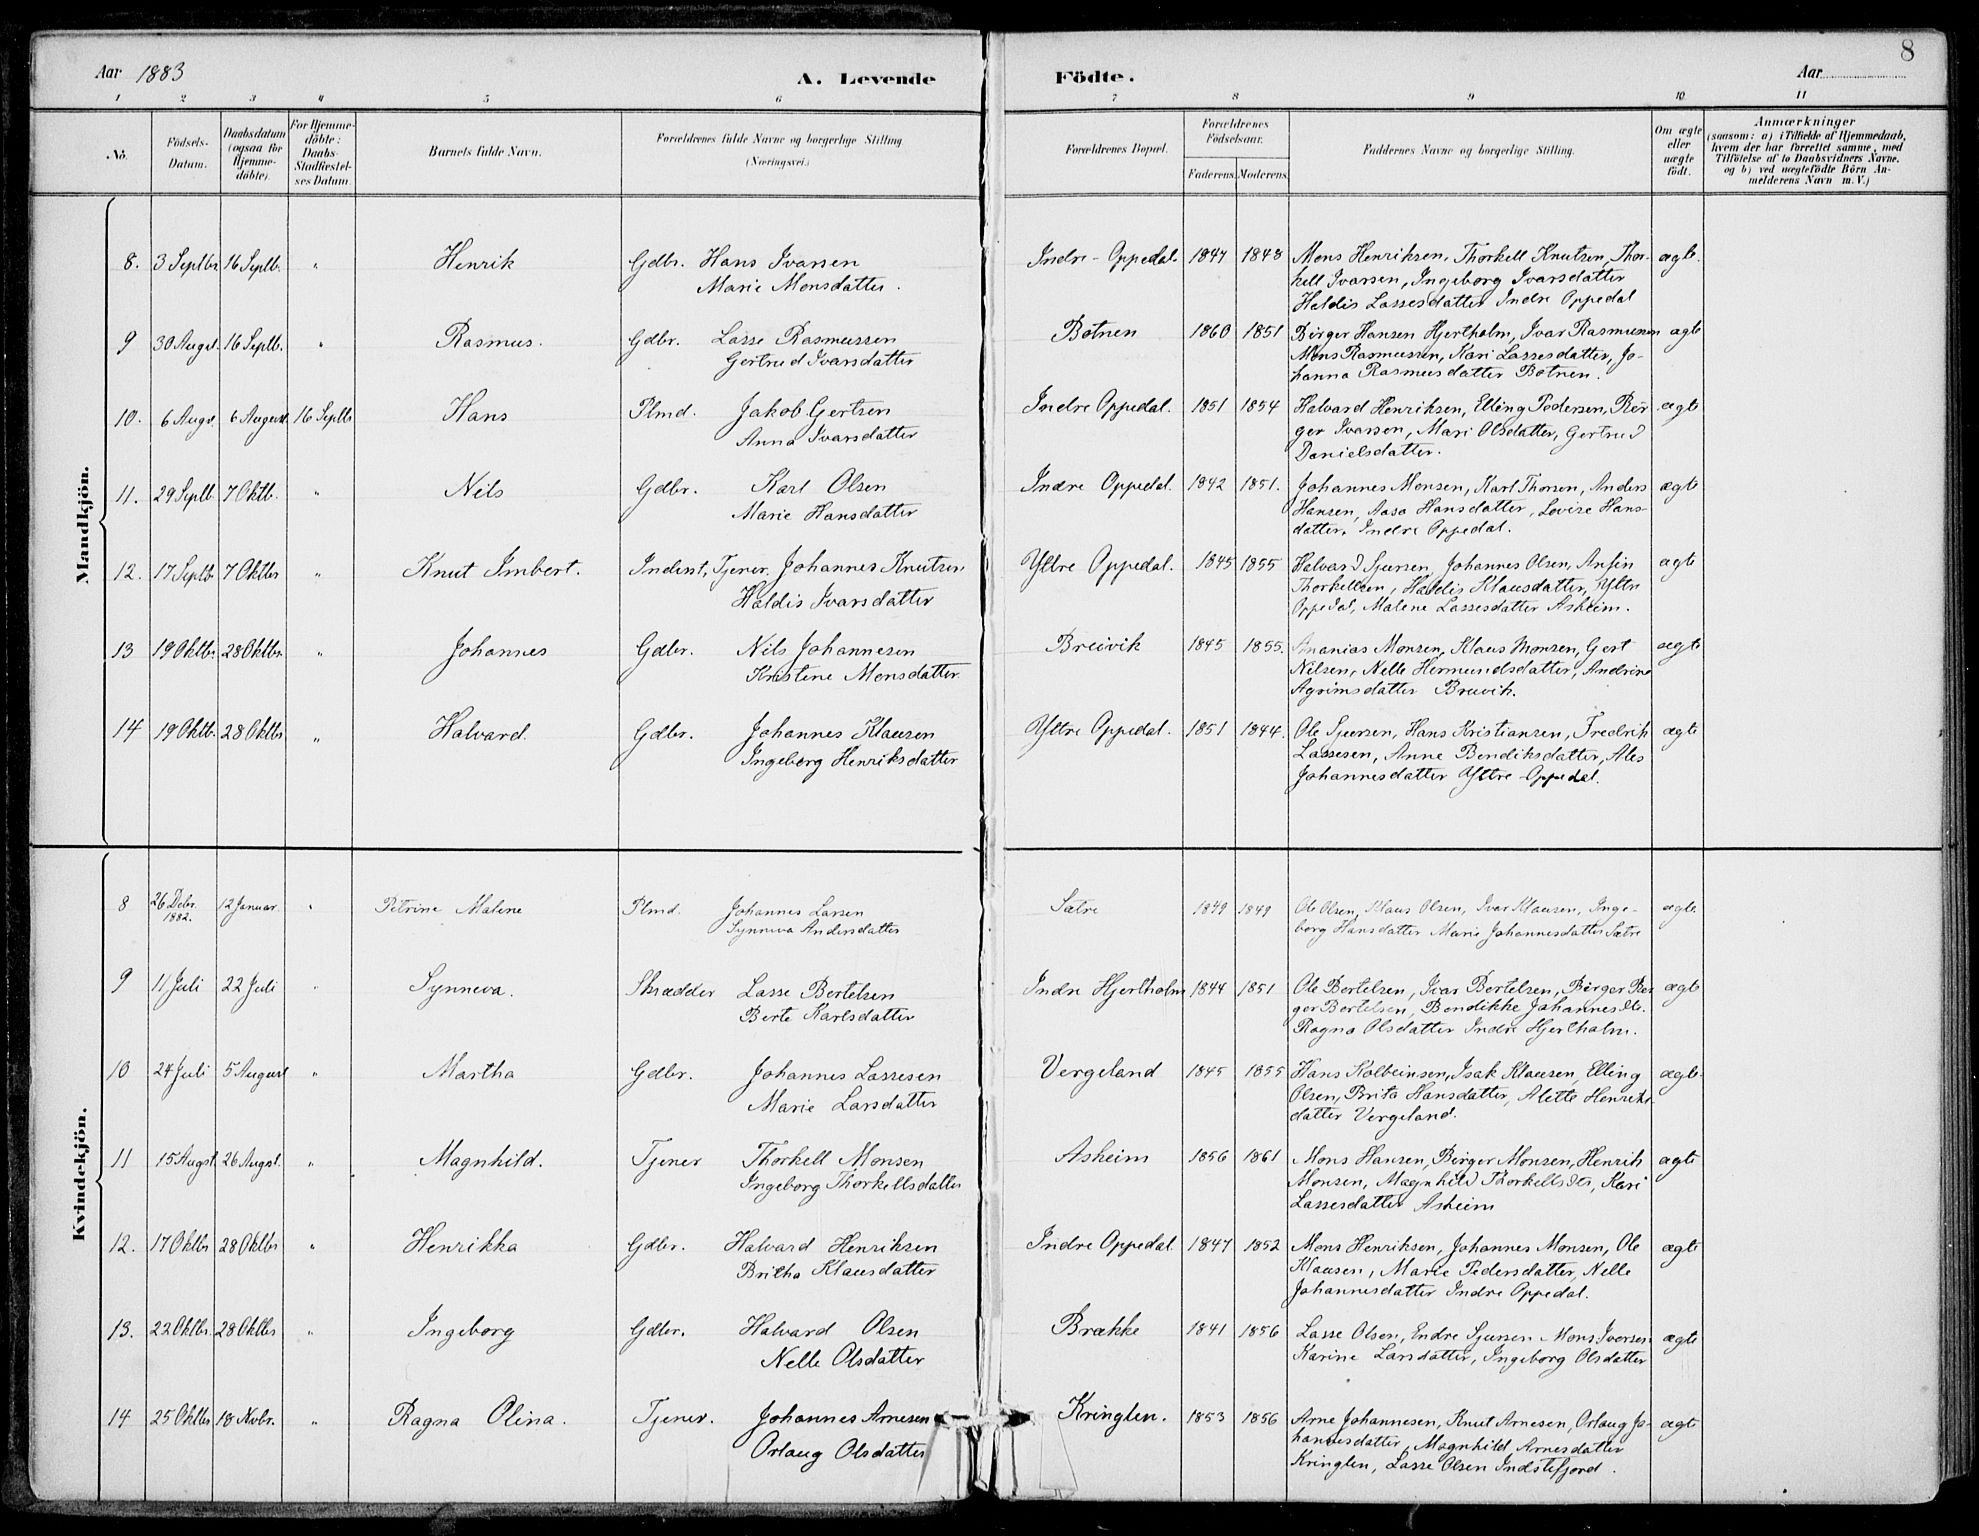 8
Aar 1883
A. Levende
Födte.
Aar
1 2 3 4 5 6 7 8 9 10 11
No.
Födsels-
Datum.
Daabsdatum
(ogsaa for
Hjemme-
döbte).
For Hjemme-
döbte:
Daabs-
Stadfæstel-
ses Datum
Barnets fulde Navn.
Forældrenes fulde Navne og borgerlige Stilling
(Næringsvei.)
Forældrenes Bopæl.
Forældrenes
Födselsaar.
Faderens. Moderens.
Faddernes Navne og borgerlige Stilling.
Om ægte
eller
uægte
födt.
Anmærkninger
(saasom: a) i Tilfælde af Hjemmedaab,
hvem der har forrettet samme, med
Tilföielse af to Daabsvidners Navne.
og b) ved uægtefödte Börn An-
melderens Navn m. V.)
Mandkjön.
8. 3 Septbr 16 Septb. " Henrik Gdbr. Hans Ivarsen Indre-Oppedal. 1847 1848 Mons Henriksen, Thorkell Knutsen, Thor- ægte.
Marie Monsdatter. kell Ivarsen, Ingeborg Ivarsdatter
Haldis Lassesdatter Indre Oppedal
9 30 Augst. 16 Septb. " Rasmus. Gdbr. Lasse Rasmussen Botnen 1860 1851 Birger Hansen Hjertholm, Ivar Rasmussen ægte
Gertrud Ivarsdatter Mons Rasmussen, Kari Lassesdatter, Jo-
hanna Rasmusdatter Botnen.
10. 6 Augs. 6 August 16 Septb Hans Plmd. Jakob Gertsen Indre Oppedal. 1851 1854 Halvard Henriksen, Elling Pedersen, Bir- ægte
Anna Ivarsdatter ger Ivarsen, Mari Olsdatter, Gertrud
Danielsdatter.
11. 29 Septb. 7 Oktb. " Nils Gdbr. Karl Olsen Indre Oppedal. 1842 1851. Johannes Monsen, Karl Thorsen, Anders ægte
Marie Hansdatter Hansen, Aasa Hansdatter, Lovise Hans-
datter, Indre Oppedal.
12. 17 Septb. 7 Oktbr " Knut Imbert. Inderst, Tjener. Johannes Knutsen Yttre Oppedal. 1845 1855 Halvard Sjursen, Johannes Olsen, Anfin ægte
Haldis Ivarsdatter Thorkellsen, Haldis Klausdatter, Yttre
Oppedal, Malene Lassesdatter Asheim.
13 19 Oktbr. 28 Oktbr. " Johannes Gdbr. Nils Johannesen Breivik 1845 1855. Ananias Monsen, Klaus Monsen, Gert ægte
Kristene Monsdatter. Nilsen, Nelle Hermundsdatter, Andrine
Agrimsdatter Breivik.
14 19 Oktb. 28 Oktbr " Halvard. Gdbr. Johannes Klausen Yttre Oppedal. 1851 1844. Ole Sjursen, Hans Kristiansen, Fredrik ægte
Ingeborg Henriksdatter Lassesen, Anne Bendiksdatter, Ales
Johannesdatter Yttre-Oppedal.
Kvindekjön.
8 26 Debr. 1882. 12 Januar. " Petrine Malene Plmd. Johannes Larsen Sætre 1849 1849 Ole Olsen, Klaus Olsen, Ivar Klausen, Inge- ægte.
Synneva Andersdatter borg Hansdatter Marie Johannesdatter Sætre
9 11 Juli 22 Juli " Synneva. Skrædder Lasse Bertelsen Indre Hjertholm 1844 1851 Ole Bertelsen, Ivar Bertelsen, Birger Bir- ægte
Berte Karlsdatter ger Bertelsen, Bendikke Johannesdtr.
Ragna Olsdatter Indre Hjertholm.
10 24 Juli 5 August " Martha Gdbr. Johannes Lassesen Vergeland 1845 1855 Hans Kolbeinsen, Isak Klausen, Elling ægte.
Marie Larsdatter Olsen, Brita Hansdatter, Alette Henriks-
datter Vergeland.
11 15 Augst. 26 Augst. " Magnhild. Tjener Thorkell Monsen Asheim 1856 1861 Mons Hansen, Birger Monsen, Henrik ægte
Ingeborg Thorkellsdatter Monsen, Magnhild Thorkellsdtr, Kari
Lassesdatter Asheim
12. 17 Oktbr 28 Oktbr " Henrikka Gdbr. Halvard Henriksen Indre Oppedal. 1847 1852 Mons Henriksen, Johannes Monsen, Ole ægte
Britha Klausdatter Klausen, Marie Pedersdatter, Nelle
Johannesdatter Indre Oppedal.
13. 22 Oktbr. 28 Oktbr " Ingeborg Gdbr. Halvard Olsen Brække 1841 1856 Lasse Olsen, Endre Sjursen Mons Iversen ægte
Nelle Olsdatter Karine Larsdatter, Ingeborg Olsdatter
14 25 Oktbr 18 Novbr. " Ragna Olina. Tjener. Johannes Arnesen Kringlen. 1853 1856 Arne Johannesen, Knut Arnesen, Orlaug Jo- ægte
Orlaug Olsdatter hannesdatter, Magnhild Arnesdatter
Kringlen, Lasse Olsen Indstefjord.